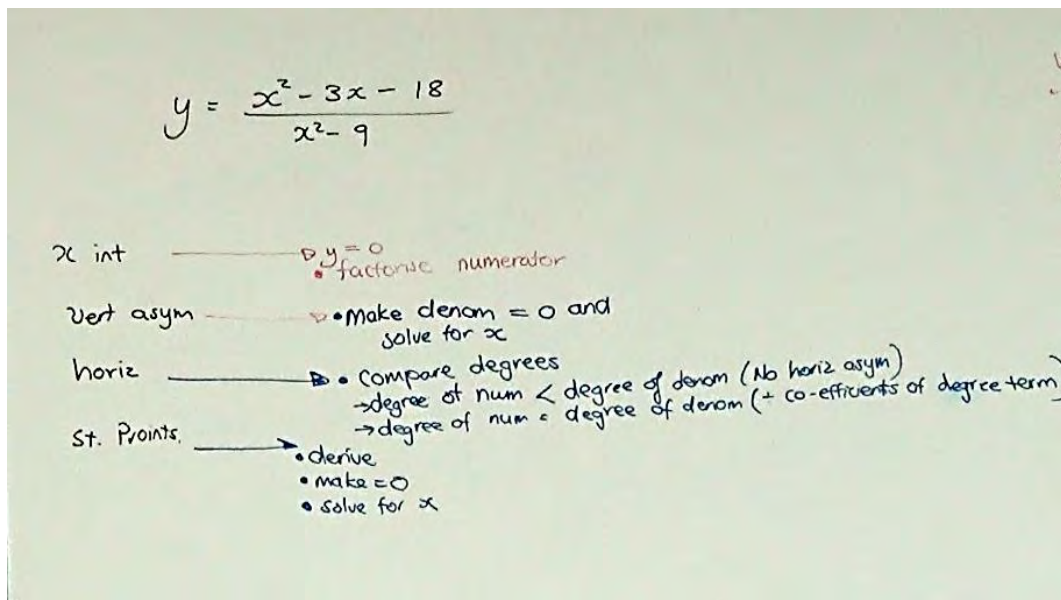 y = x² - 3x - 18 / x² - 9
x int → y = 0
• factorise numerator
Vert asym → • make denom = 0 and
solve for x
horiz → • compare degrees
→ degree of num < degree of denom (No horiz asym)
→ degree of num = degree of denom (÷ co-efficients of degree term)
St. Points. → • derive
• make = 0
• solve for x